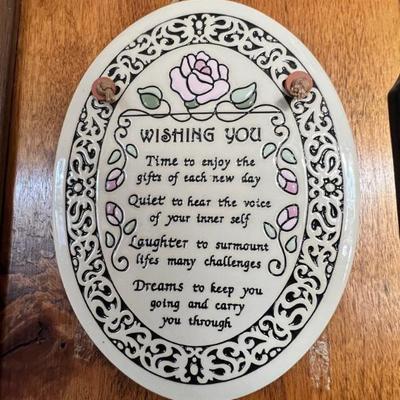 WISHING YOU
Time to enjoy the
gifts of each new day
Quiet to hear the voice
of your inner self
Laughter to surmount
lifes many challenges
Dreams to keep you
going and carry
you through